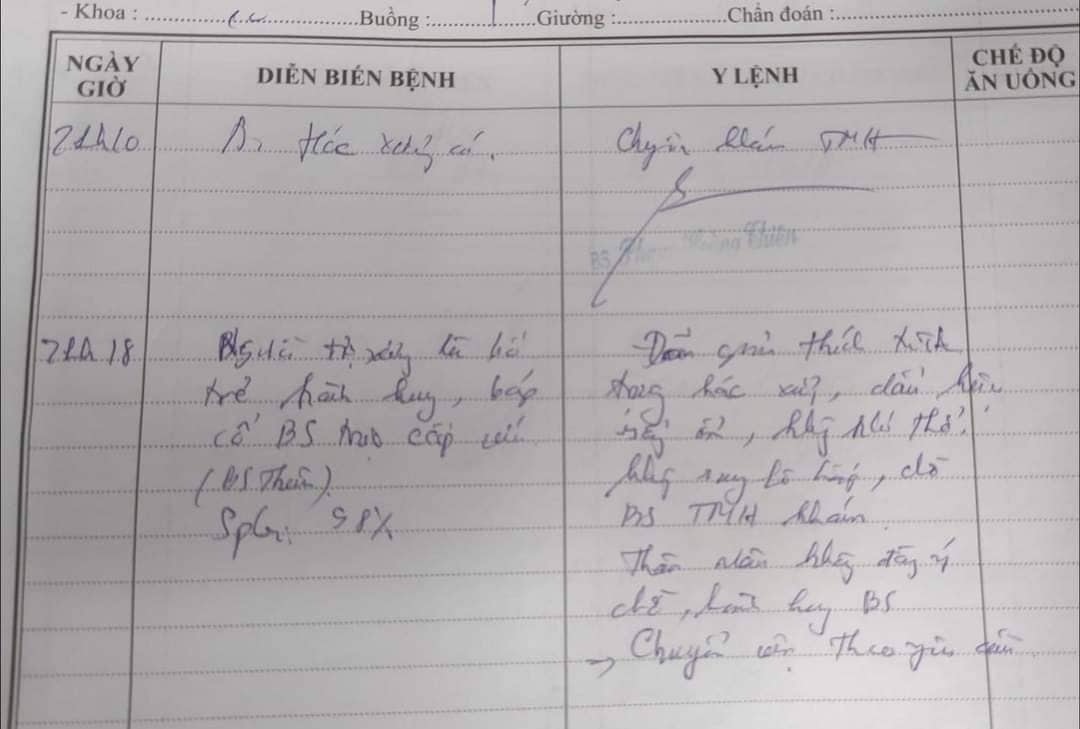 - Khoa : Buồng : Giường : Chẩn đoán :
NGÀY GIỜ
DIỄN BIẾN BỆNH
Y LỆNH
CHẾ ĐỘ ĂN UỐNG
21h10
Hóc xương cá.
Chuyên khám TMH
BS Thiên
21h18
Người
trẻ hành hung, bóp
cổ BS trực cấp cứu
(BS Thiên).
SpO2: 98%
giải thích
trong hóc xương, dấu hiệu
ổn, không khó thở,
không suy hô hấp, chờ
BS TMH khám
Thân nhân không đồng ý
chờ, hành hung BS
→ Chuyển viện theo yêu cầu